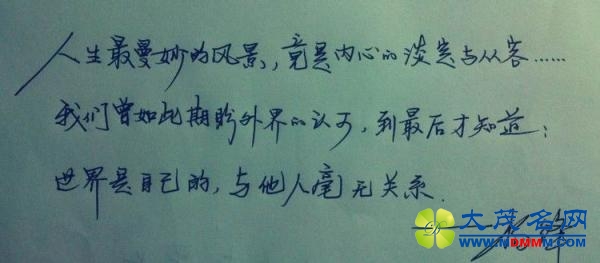 人生最曼妙的风景，竟是内心的淡定与从容……
我们曾如此期盼外界的认可，到最后才知道：
世界是自己的，与他人毫无关系.
大茂名网
WWW.MDMMM.COM